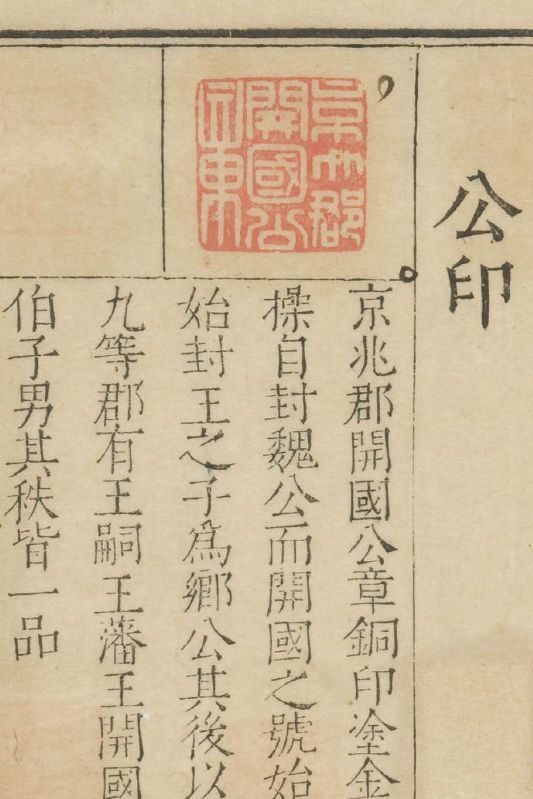 公印
京兆郡
開國公
京兆郡開國公章銅印塗金
操自封魏公而開國之號始
始封王之子爲鄉公其後以
九等郡有王嗣王藩王開國
伯子男其秩皆一品